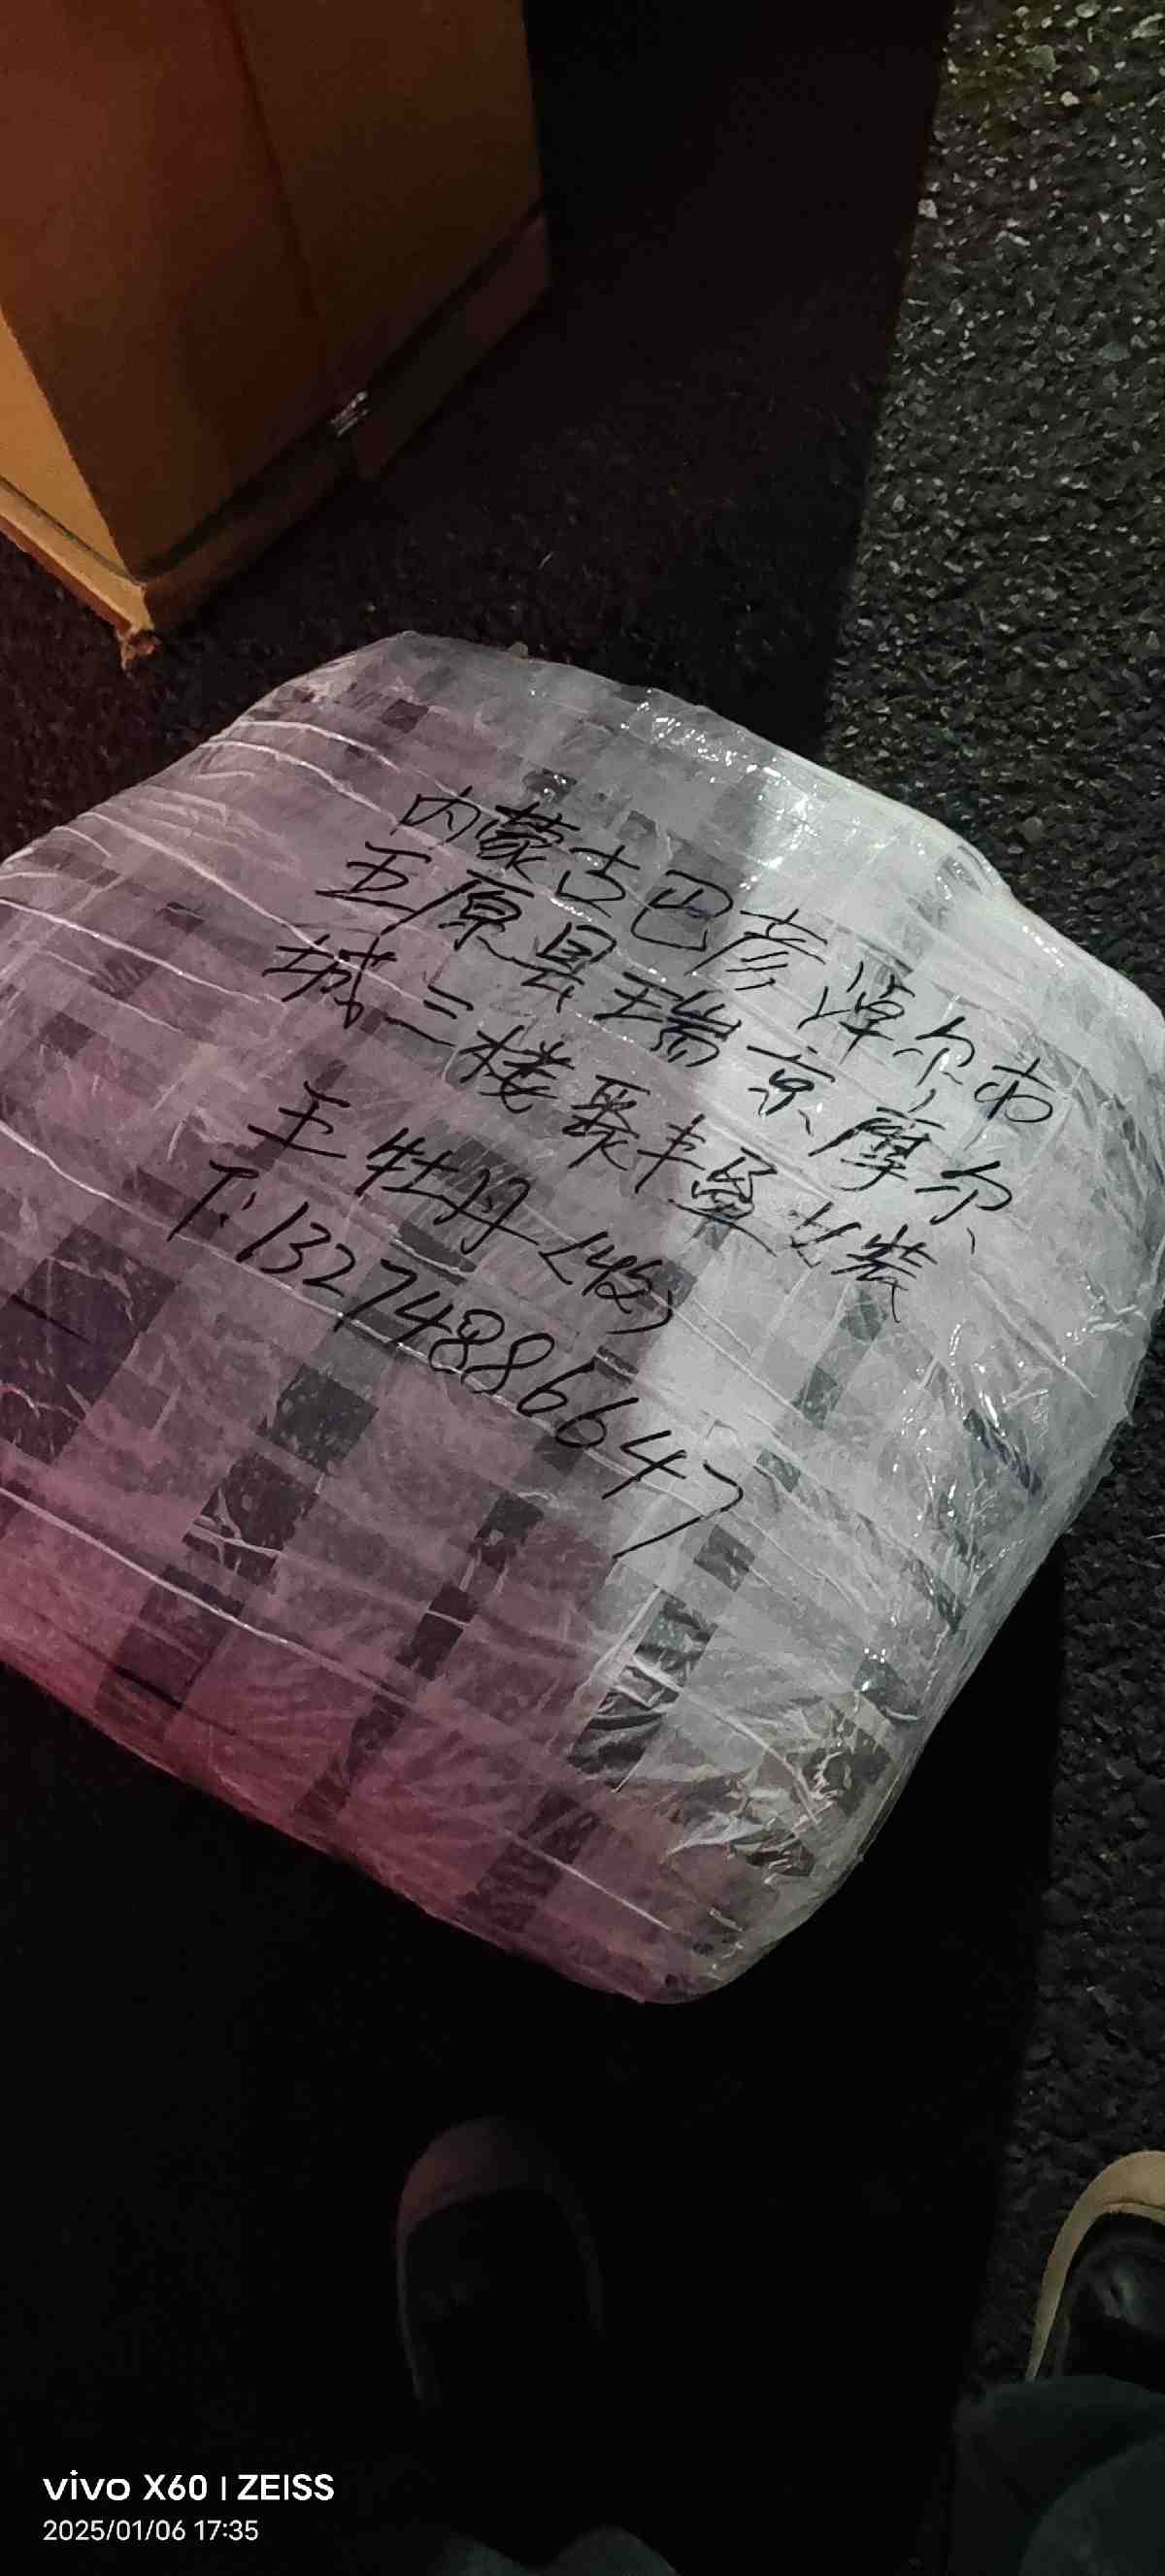 内蒙古巴彦淖尔市
五原县瑞京摩尔
城三楼聚丰隆女装
王牡丹(收)
T:13274886647
vivo X60 | ZEISS
2025/01/06 17:35